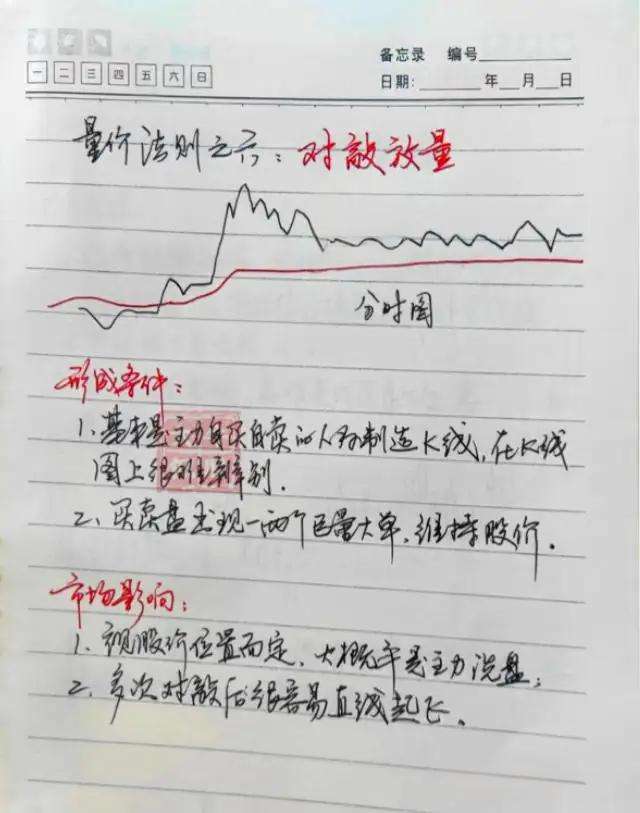 备忘录 编号
一 二 三 四 五 六 日
日期: 年 月 日
量价法则之六：对敲放量
分时图
形成条件：
1、基本是主力自买自卖的人为制造K线，在K线
图上很难辨别．
2、买卖盘出现一两个巨量大单，维持股价．
市场影响：
1、视股价位置而定，大概率是主力洗盘；
2、多次对敲后很容易直线起飞．